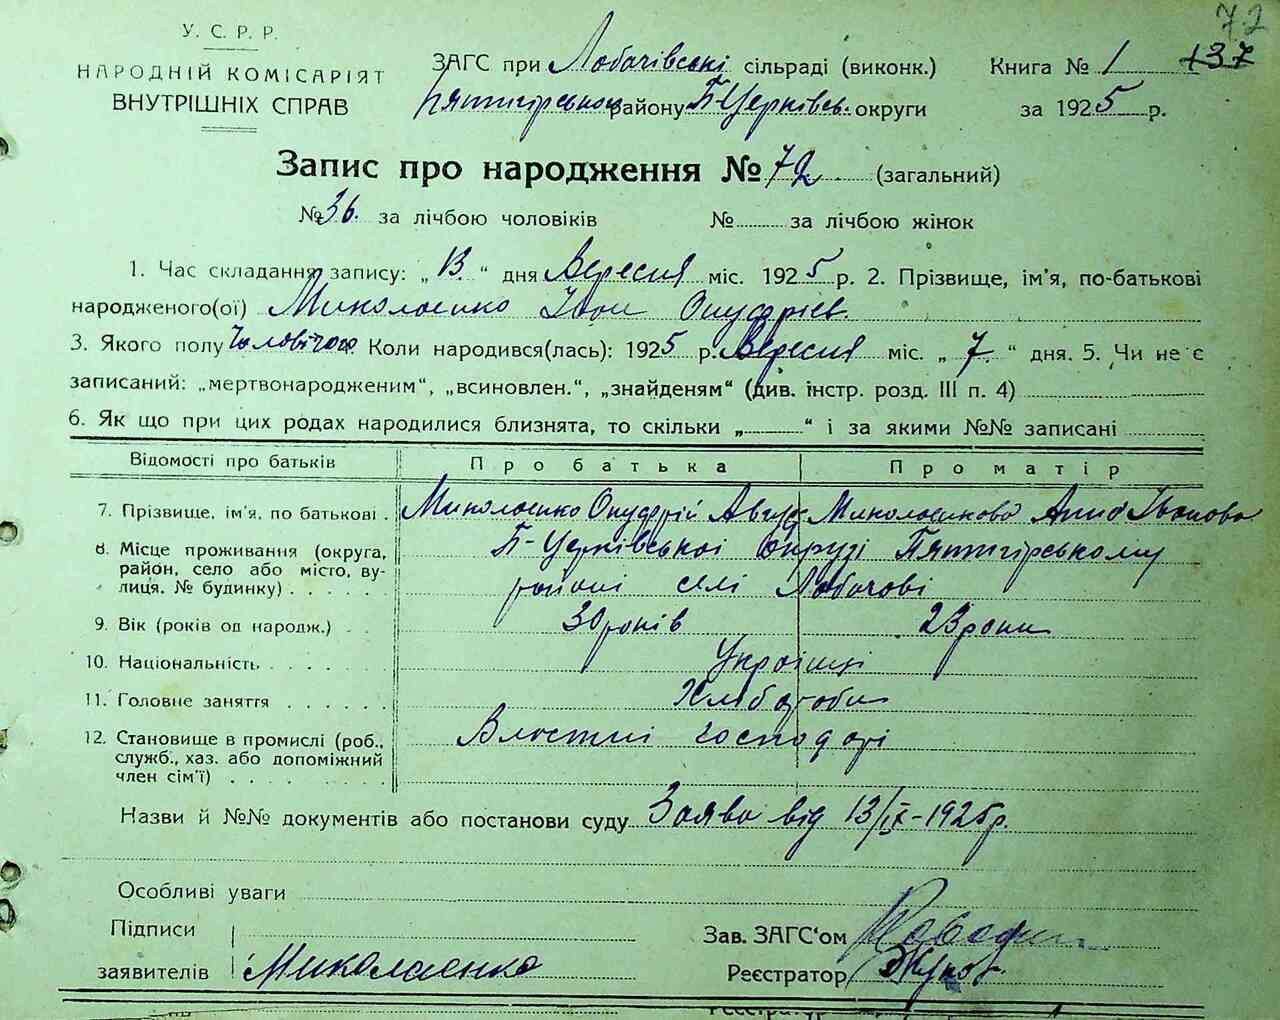 72
У. С. Р. Р.
НАРОДНІЙ КОМІСАРІЯТ
ВНУТРІШНІХ СПРАВ
ЗАГС при Лобачівські сільраді (виконк.) Книга № 1 137
Пятигірського району Б-Церківсь. округи за 1925 р.
Запис про народження № 72 (загальний)
№ 36. за лічбою чоловіків № за лічбою жінок
1. Час складання запису: „13“ дня Вересня міс. 1925 р. 2. Прізвище, ім'я, по-батькові
народженого(ої) Миколаєнко Іван Онуфріев.
3. Якого полу Чоловічого Коли народився(лась): 1925 р. Вересня міс. „7“ дня. 5. Чи не є
записаний: „мертвонародженим“, „всиновлен.“, „знайденям“ (див. інстр. розд. III п. 4)
6. Як що при цих родах народилися близнята, то скільки „ “ і за якими №№ записані
Відомості про батьків Про батька Про матір
7. Прізвище, ім'я, по батькові . Миколаєнко Онуфрій Миколаєнкова Анна Іванова
8. Місце проживання (округа, район, село або місто, вулиця. № будинку) Б-Церківської округі Пятигірському
районі селі Лобачові
9. Вік (років од народж.) . . 30 років 23 роки
10. Національність Українці
11. Головне заняття Хлібороби
12. Становище в промислі (роб., служб., хаз. або допоміжний член сім'ї) Властні господарі
Назви й №№ документів або постанови суду Заява від 13/IX-1925 р.
Особливі уваги
Підписи
заявителів Миколаенко
Зав. ЗАГС‘ом
Реєстратор